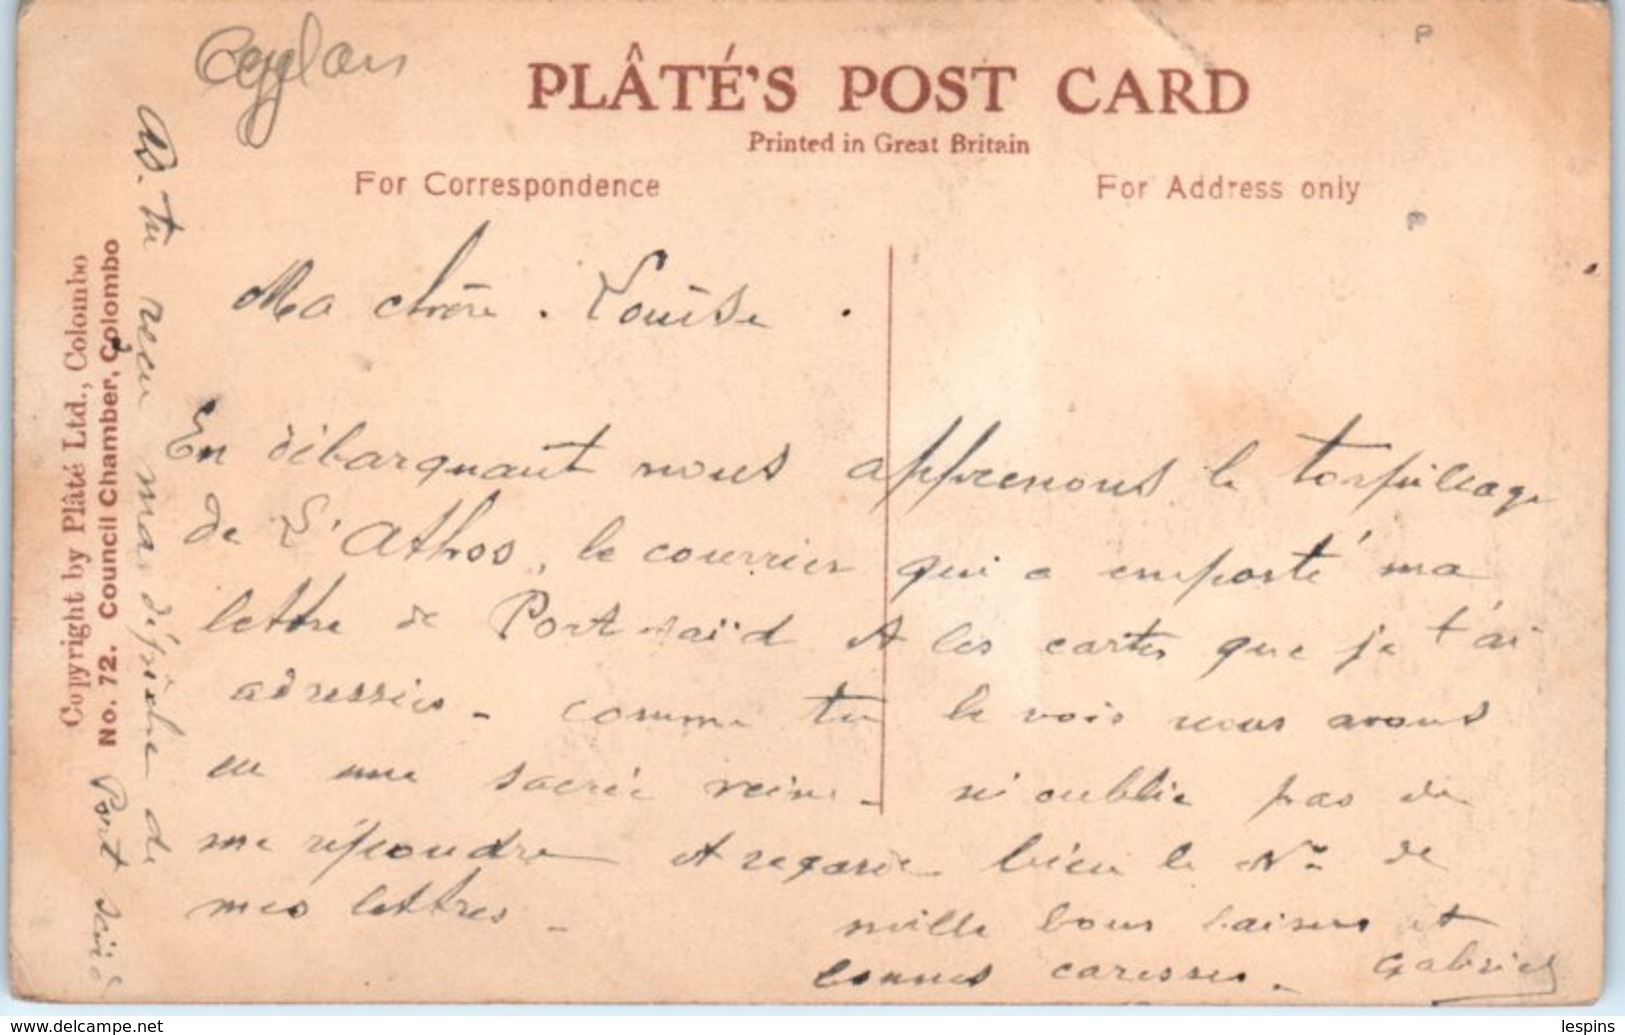 Ceylan
PLÂTÉ'S POST CARD
Printed in Great Britain
For Correspondence
For Address only
Ma chère Louise.
En débarquant nous apprenons le torpillage
de L'Athos, le courrier qui a emporté ma
lettre de Port saïd et les cartes que je t'ai
adressées - comme tu le vois nous avons
eu une sacrée veine - n'oublie pas de
me répondre et regarde bien le No de
mes lettres -
mille bons baisers et
bonnes caresses. Gabriel
As. tu reçu ma dépêche de
Port Saïd
Copyright by Plâté Ltd., Colombo
No. 72. Council Chamber, Colombo
lespins
www.delcampe.net